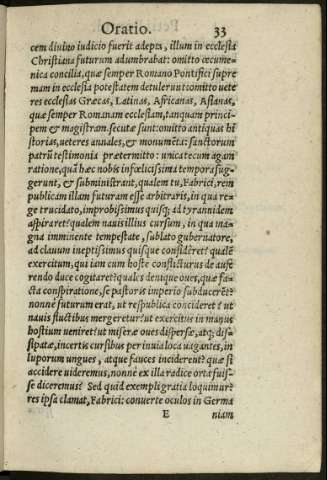 Oratio. 33
cem diuino iudicio fuerit adepta, illum in ecclesia
Christiana futurum adumbrabat: omitto œcume-
nica concilia, quæ semper Romano Pontifici supre
mam in ecclesia potestatem detulerunt: omitto uete
res ecclesias Græcas, Latinas, Africanas, Asianas,
quæ semper Romanam ecclesiam, tanquam princi-
pem & magistram secutæ sunt: omitto antiquas hi
storias, ueteres annales, & monumēta: sanctorum
patrū testimonia prætermitto: unica tecum agam
ratione, quā hæc nobis infœlicissima tempora sug-
gerunt, & subministrant, qualem tu, Fabrici, rem
publicam illam futuram esse arbitraris, in qua re-
ge trucidato, improbissimus quisq; ad tyrannidem
aspiraret? qualem nauis illius cursum, in qua ma-
gna imminente tempestate, sublato gubernatore,
ad clauum ineptissimus quisque consideret? qualē
exercitum, qui iam cum hoste conflicturus de aufe
rendo duce cogitaret? quales denique oues, quæ fa-
cta conspiratione, se pastoris imperio subducerēt?
nonnē futurum erat, ut respublica concideret? ut
nauis fluctibus mergeretur? ut exercitus in manus
hostium ueniret? ut miseræ oues dispersæ, atq; dis-
sipatæ, incertis cursibus per inuia loca uagantes, in
luporum ungues, atque fauces inciderent? quæ si
accidere uideremus, nonnē ex illa radice orta fuis-
se diceremus? Sed quid exempli gratia loquimur?
res ipsa clamat, Fabrici: conuerte oculos in Germa
E niam